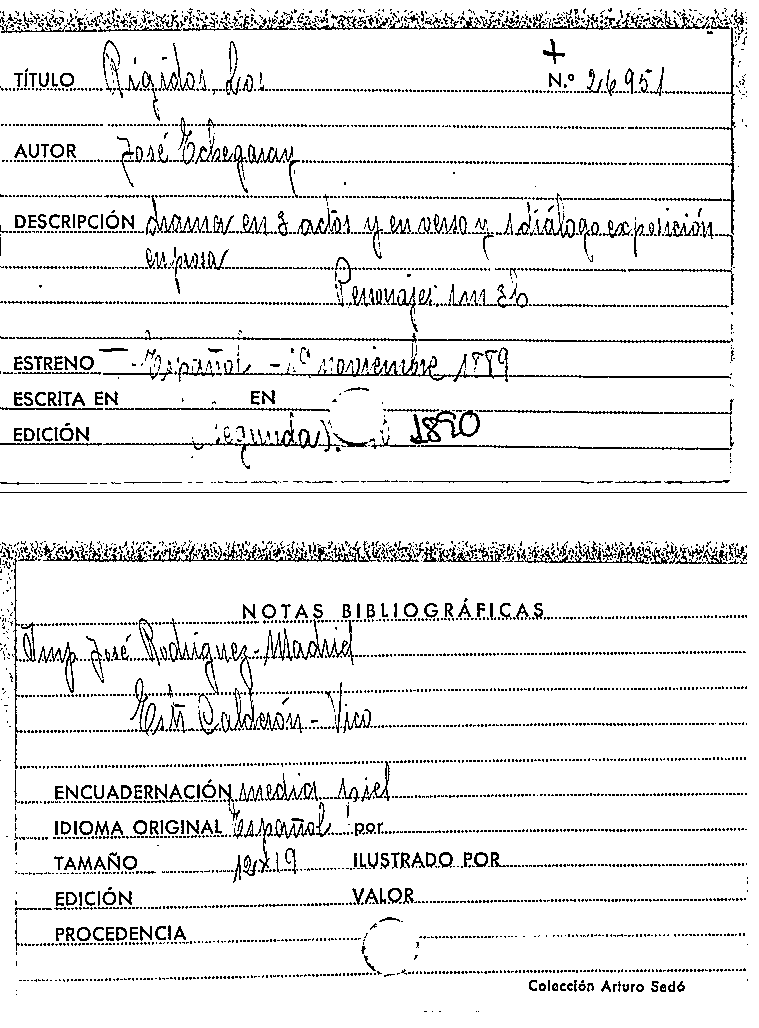 TÍTULO Rígidos, Los
+
N.º 26951
AUTOR José Echegaray
DESCRIPCIÓN drama en 3 actos y en verso y 1 diálogo exposición
en prosa
Personajes:
ESTRENO Español - 1º noviembre 1889
ESCRITA EN EN
EDICIÓN (Segunda). 1890
NOTAS BIBLIOGRÁFICAS
Imp José Rodríguez - Madrid
Calderón - Vico
ENCUADERNACIÓN media piel
IDIOMA ORIGINAL Español por
TAMAÑO 12x19 ILUSTRADO POR
EDICIÓN VALOR
PROCEDENCIA
Colección Arturo Sedó